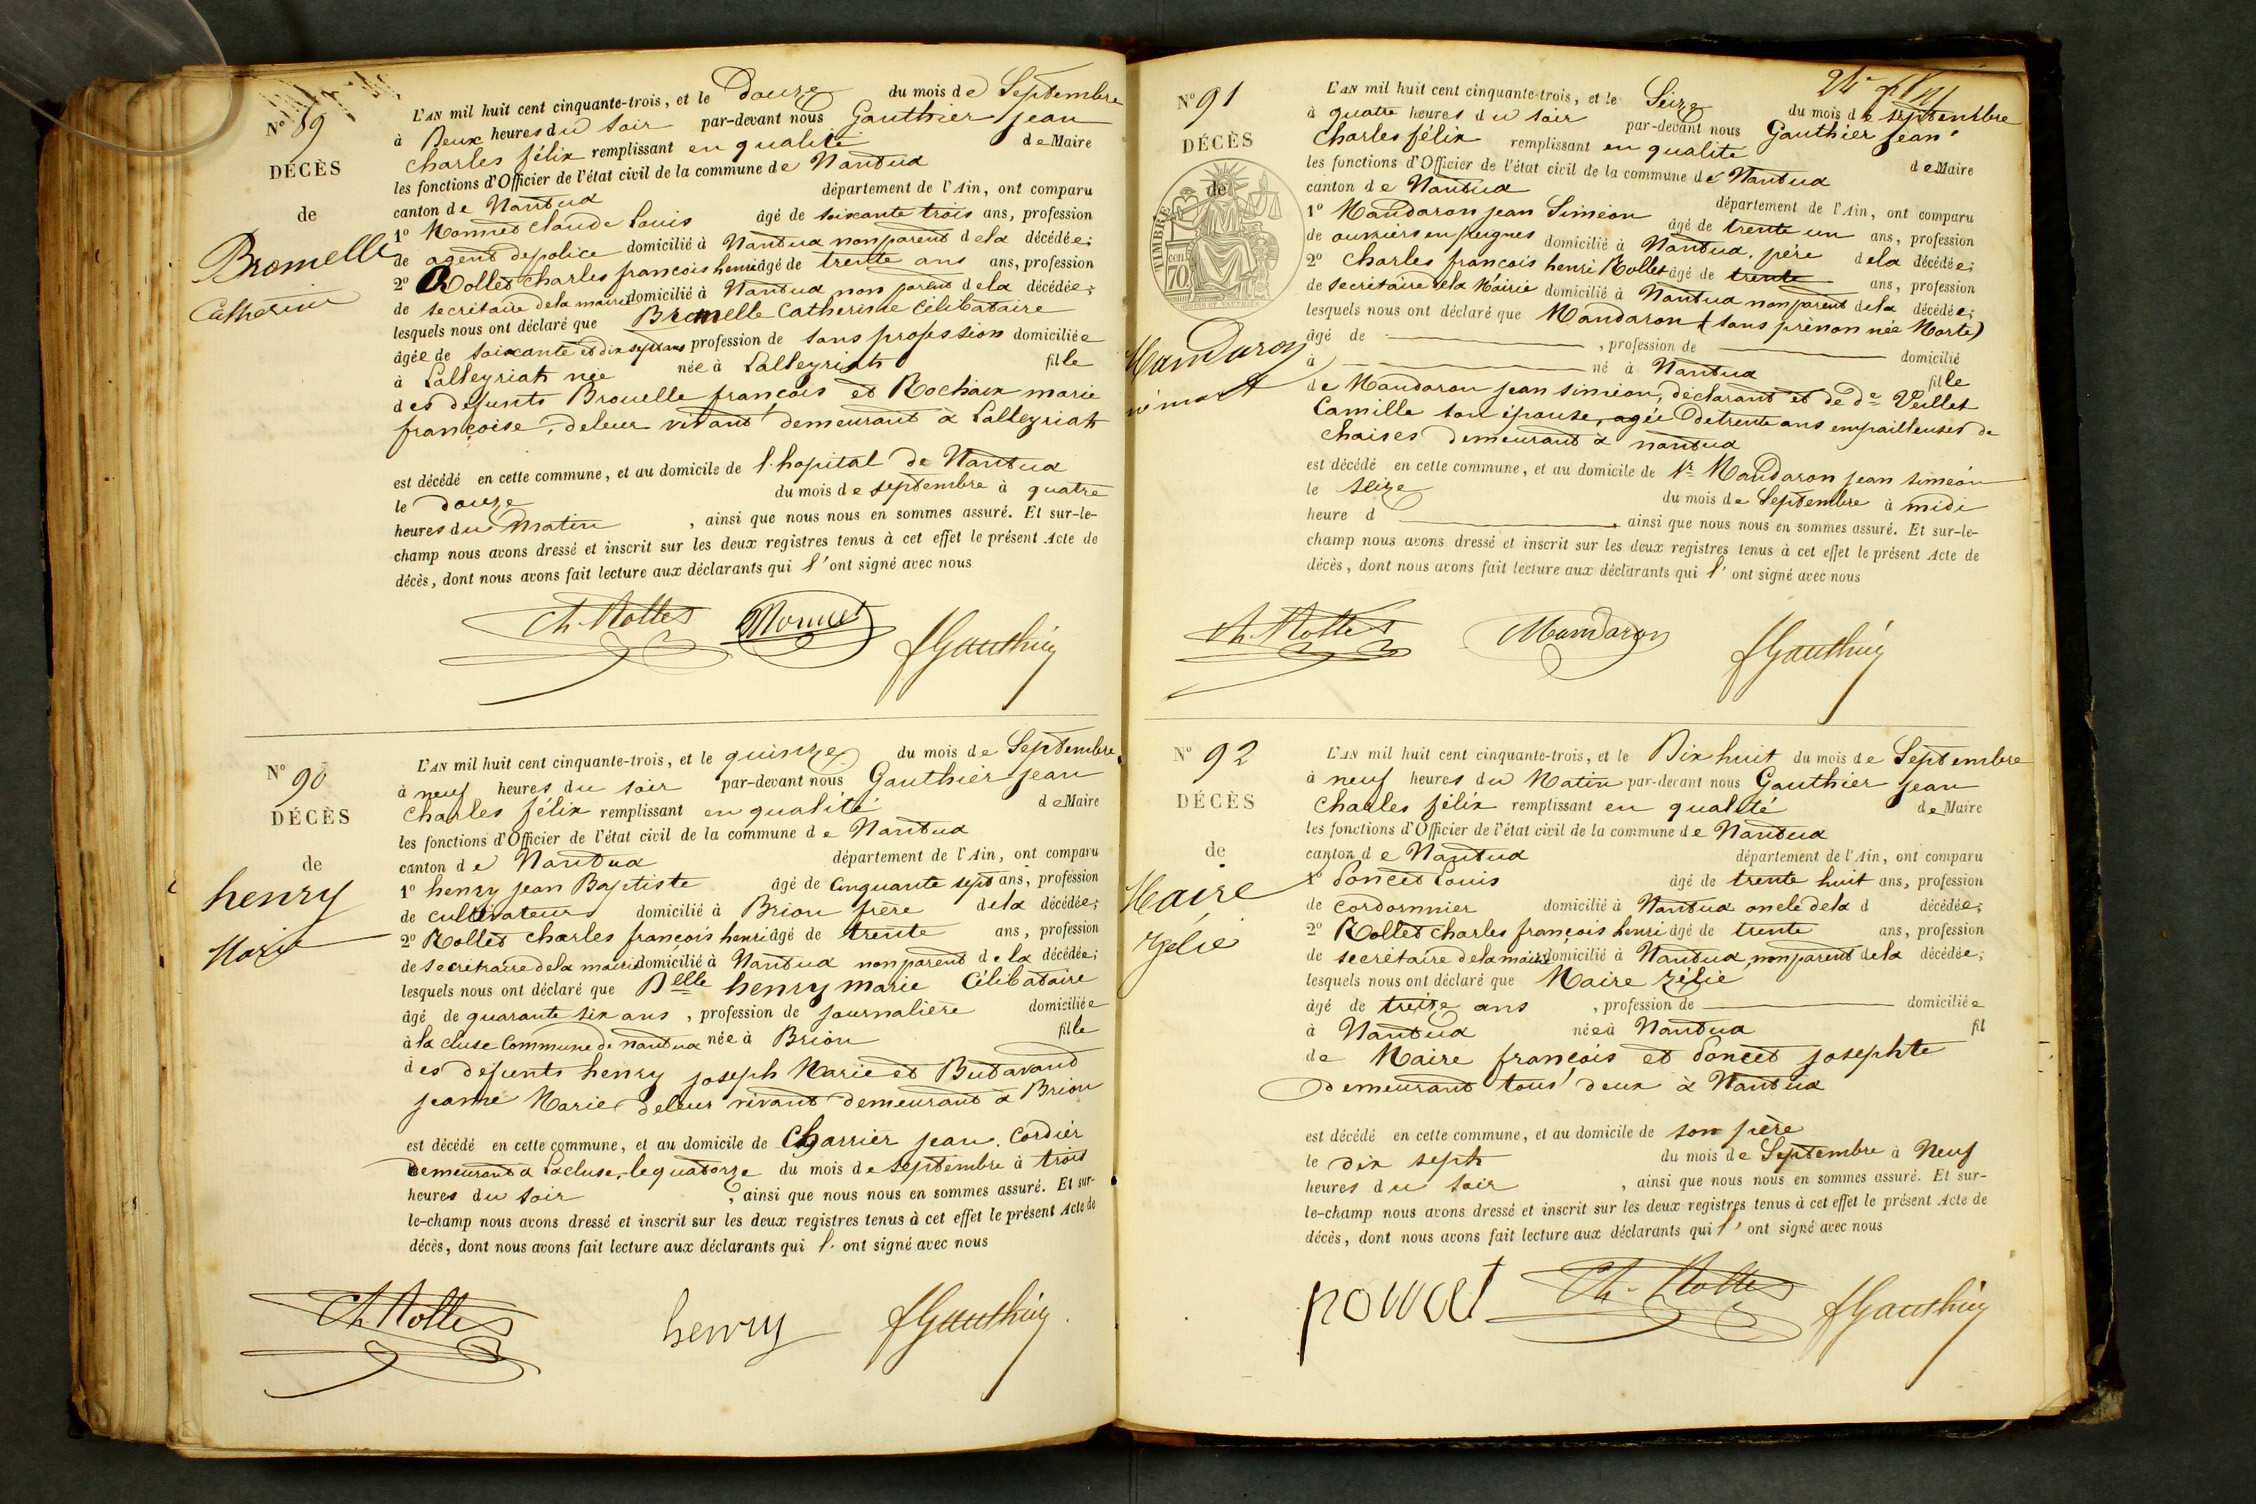 N° 89
DÉCÈS
de
Bromelle
Catherine
L'AN mil huit cent cinquante-trois, et le Douze du mois de Septembre
à Deux heures du soir par-devant nous Gauthier jean
Charles félix remplissant en qualité de Maire
les fonctions d'Officier de l'état civil de la commune de Nantua
canton de Nantua département de l'Ain, ont comparu
1° Monnet Claude Louis âgé de soixante trois ans, profession
de agent de police domicilié à Nantua non parent de la décédée;
2° Rollet Charles françois henri âgé de trente ans ans, profession
de secrétaire de la mairie domicilié à Nantua non parent de la décédée;
lesquels nous ont déclaré que Bromelle Catherine Célibataire
âgée de soixante et dix sept ans profession de sans profession domiciliée
à Lalleyriat née née à Lalleyriat fille
des défunts Brouelle françois et Rochaix marie
françoise, de leur vivant demeurant à Lalleyriat
est décédé en cette commune, et au domicile de l'hopital de Nantua
le douze du mois de septembre à quatre
heures du Matin , ainsi que nous nous en sommes assuré. Et sur-le-
champ nous avons dressé et inscrit sur les deux registres tenus à cet effet le présent Acte de
décès, dont nous avons fait lecture aux déclarants qui l'ont signé avec nous
Ch. Rollet Monnet f Gauthier
N° 90
DÉCÈS
de
henry
Marie
L'AN mil huit cent cinquante-trois, et le quinze du mois de Septembre
à neuf heures du soir par-devant nous Gauthier jean
Charles félix remplissant en qualité de Maire
les fonctions d'Officier de l'état civil de la commune de Nantua
canton de Nantua département de l'Ain, ont comparu
1° henry jean Baptiste âgé de cinquante sept ans, profession
de cultivateur domicilié à Brion frère de la décédée;
2° Rollet Charles françois henri âgé de trente ans, profession
de secrétaire de la mairie domicilié à Nantua non parent de la décédée;
lesquels nous ont déclaré que Delle henry marie Célibataire
âgé de quarante six ans , profession de journalière domiciliée
à la cluse Commune de Nantua née à Brion fille
des défunts henry joseph Marie et Butavand
jeanne Marie de leur vivant demeurant à Brion
est décédé en cette commune, et au domicile de Charrier jean, Cordier
demeurant à Lacluse, le quatorze du mois de septembre à trois
heures du soir , ainsi que nous nous en sommes assuré. Et sur-
le-champ nous avons dressé et inscrit sur les deux registres tenus à cet effet le présent Acte de
décès, dont nous avons fait lecture aux déclarants qui l'ont signé avec nous
Ch Rollet henry f Gauthier
N° 91
DÉCÈS
de
TIMBRE
cen 70
Mandaron
né mort
L'AN mil huit cent cinquante-trois, et le Seize du mois de septembre
à quatre heures du soir par-devant nous Gauthier jean
Charles félix remplissant en qualité de Maire
les fonctions d'Officier de l'état civil de la commune de Nantua
canton de Nantua département de l'Ain, ont comparu
1° Mandaron jean Siméon âgé de trente un ans, profession
de ouvrier en peignes domicilié à Nantua, père de la décédée;
2° Charles françois henri Rollet âgé de trente ans, profession
de secrétaire de la Mairie domicilié à Nantua non parent de la décédée;
lesquels nous ont déclaré que Mandaron (sans prénom née Morte)
âgé de , profession de domicilié
à né à Nantua fille
de Mandaron jean siméon, déclarant et de De Veillet
Camille son épouse, agée de trente ans empailleuses de
chaises demeurant à nantua
est décédé en cette commune, et au domicile de Sr Mandaron jean siméon
le seize du mois de Septembre à midi
heure d , ainsi que nous nous en sommes assuré. Et sur-le-
champ nous avons dressé et inscrit sur les deux registres tenus à cet effet le présent Acte de
décès, dont nous avons fait lecture aux déclarants qui l'ont signé avec nous
Ch. Rollet Mandaron f Gauthier
N° 92
DÉCÈS
de
Maire
Zélie
L'AN mil huit cent cinquante-trois, et le Dix huit du mois de Septembre
à neuf heures du Matin par-devant nous Gauthier jean
Charles félix remplissant en qualité de Maire
les fonctions d'Officier de l'état civil de la commune de Nantua
canton de Nantua département de l'Ain, ont comparu
1° Poncet Louis âgé de trente huit ans, profession
de cordonnier domicilié à Nantua oncle de la d décédée;
2° Rollet Charles françois henri âgé de trente ans, profession
de secrétaire de la mairie domicilié à Nantua, non parent de la décédée;
lesquels nous ont déclaré que Maire zélie
âgé de treize ans , profession de domiciliée
à Nantua née à Nantua fil
de Maire françois et Poncet josephte
demeurant tous deux à Nantua
est décédé en cette commune, et au domicile de son père
le dix sept du mois de Septembre à Neuf
heures du soir , ainsi que nous nous en sommes assuré. Et sur-
le-champ nous avons dressé et inscrit sur les deux registres tenus à cet effet le présent Acte de
décès, dont nous avons fait lecture aux déclarants qui l'ont signé avec nous
poncet Ch. Rollet f Gauthier